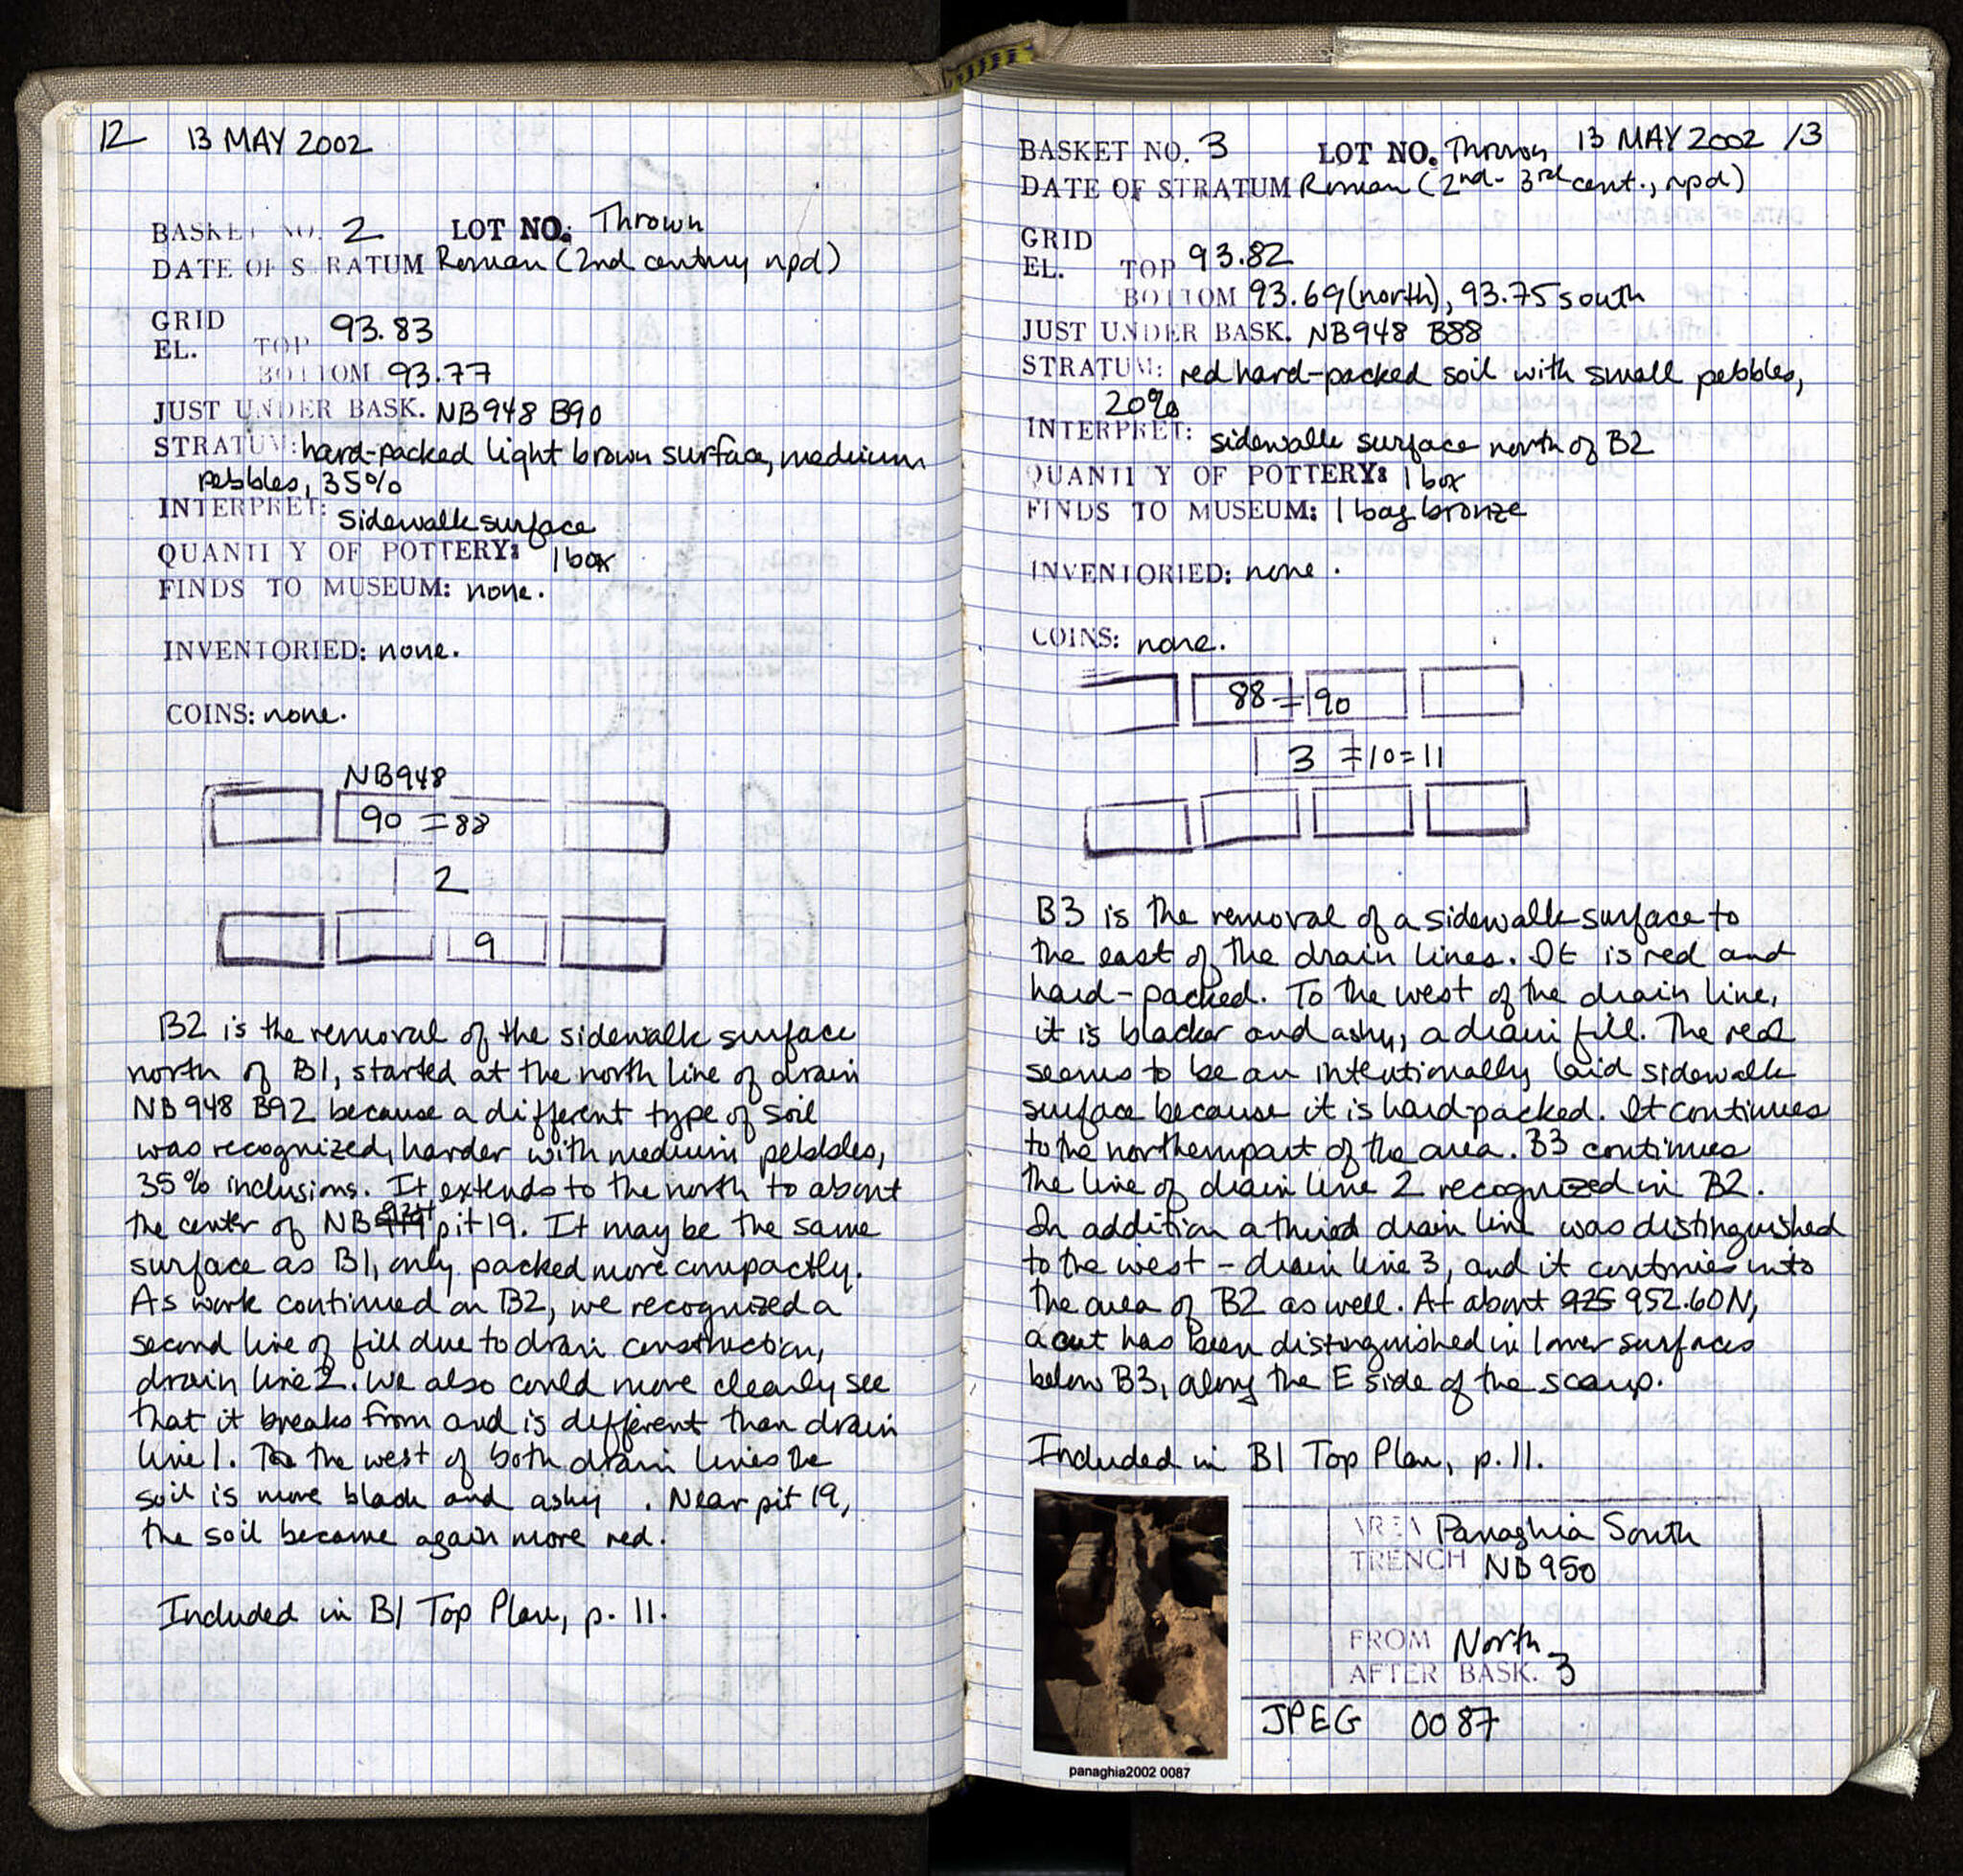 12 13 MAY 2002
BASKET NO. 2 LOT NO. Thrown
DATE OF STRATUM Roman (2nd century npd)
GRID
EL. TOP 93.83
BOTTOM 93.77
JUST UNDER BASK. NB948 B90
STRATUM: hard-packed light brown surface, medium
pebbles, 35%
INTERPRET: sidewalk surface
QUANTITY OF POTTERY: 1 box
FINDS TO MUSEUM: none.
INVENTORIED: none.
COINS: none.
NB948
90 = 88
2
9
B2 is the removal of the sidewalk surface
north of B1, started at the north line of drain
NB948 B92 because a different type of soil
was recognized, harder with medium pebbles,
35% inclusions. It extends to the north to about
the center of NB pit 19. It may be the same
surface as B1, only packed more compactly.
As work continued on B2, we recognized a
second line of fill due to drain construction,
drain line 2. We also could more clearly see
that it breaks from and is different than drain
line 1. To the west of both drain lines the
soil is more black and ashy . Near pit 19,
the soil became again more red.
Included in B1 Top Plan, p. 11.
BASKET NO. 3 LOT NO. Thrown 13 MAY 2002 13
DATE OF STRATUM Roman (2nd - 3rd cent., npd)
GRID
EL. TOP 93.82
BOTTOM 93.69 (north), 93.75 south
JUST UNDER BASK. NB948 B88
STRATUM: red hard-packed soil with small pebbles,
20%
INTERPRET: sidewalk surface north of B2
QUANTITY OF POTTERY: 1 box
FINDS TO MUSEUM: 1 bag bronze
INVENTORIED: none.
COINS: none.
88 = 90
3 = 10 = 11
B3 is the removal of a sidewalk surface to
the east of the drain lines. It is red and
hard-packed. To the west of the drain line,
it is blacker and ashy, a drain fill. The red
seems to be an intentionally laid sidewalk
surface because it is hard packed. It continues
to the northern part of the area. B3 continues
the line of drain line 2 recognized in B2.
In addition a third drain line was distinguished
to the west - drain line 3, and it continues into
the area of B2 as well. At about 925 952.60N,
a cut has been distinguished in lower surfaces
below B3, along the E side of the scarp.
Included in B1 Top Plan, p. 11.
AREA Panaghia South
TRENCH NB950
FROM North
AFTER BASK. 3
JPEG 0087
panaghia2002 0087